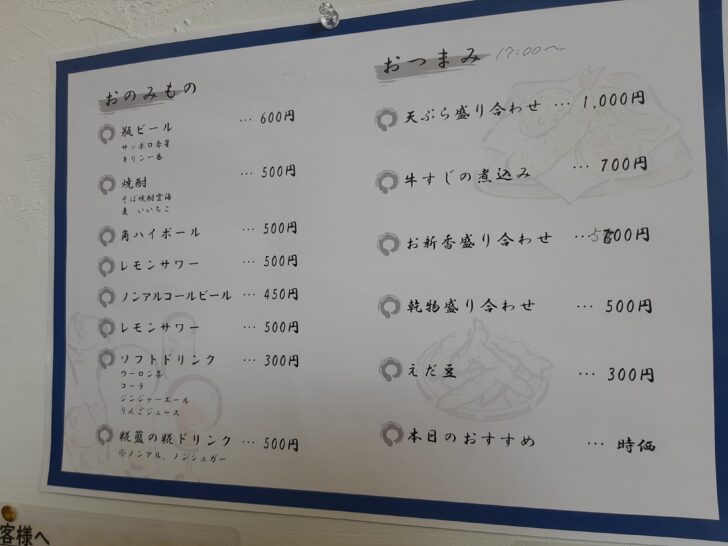 おのみもの
瓶ビール … 600円
サッポロ赤星
キリン一番
焼酎 … 500円
そば焼酎雲海
麦 いいちこ
角ハイボール … 500円
レモンサワー … 500円
ノンアルコールビール … 450円
レモンサワー … 500円
ソフトドリンク … 300円
ウーロン茶
コーラ
ジンジャーエール
りんごジュース
糀藍の糀ドリンク … 500円
※ノンアル、ノンシュガー
おつまみ 17:00〜
天ぷら盛り合わせ … 1,000円
牛すじの煮込み … 700円
お新香盛り合わせ … 500円
乾物盛り合わせ … 500円
えだ豆 … 300円
本日のおすすめ … 時価
客様へ